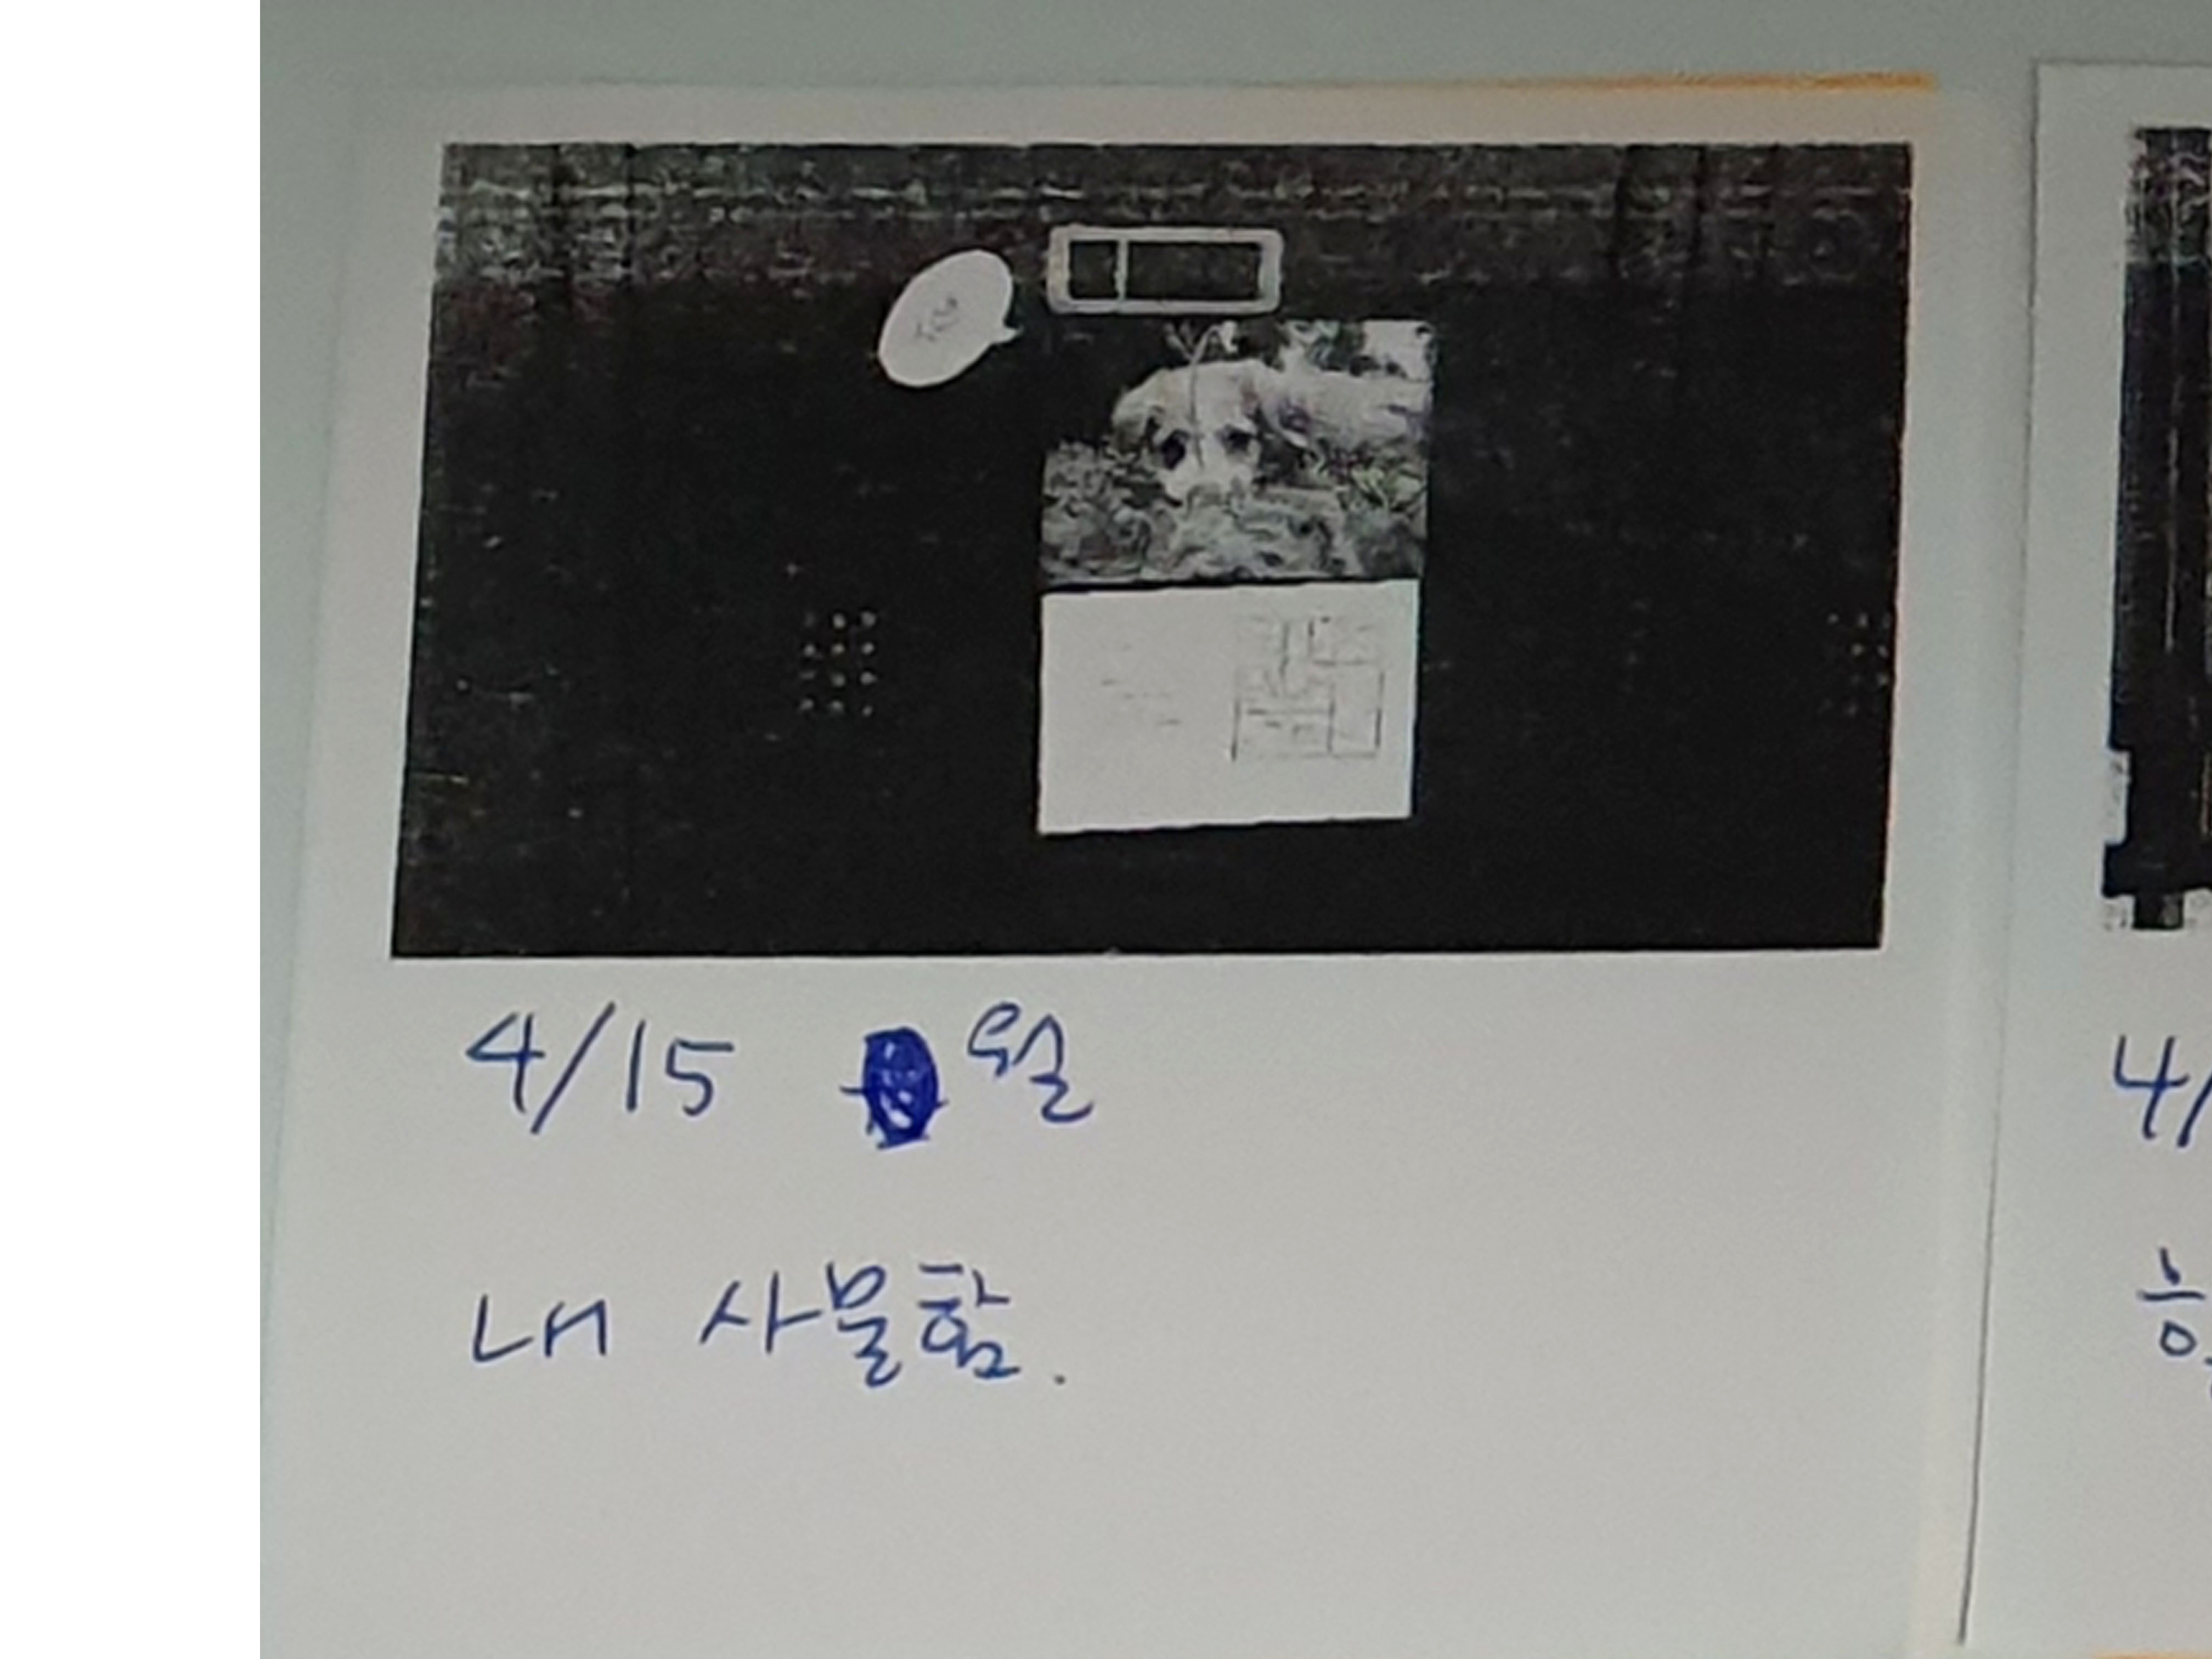 4/15 월
내 사물함.
4/